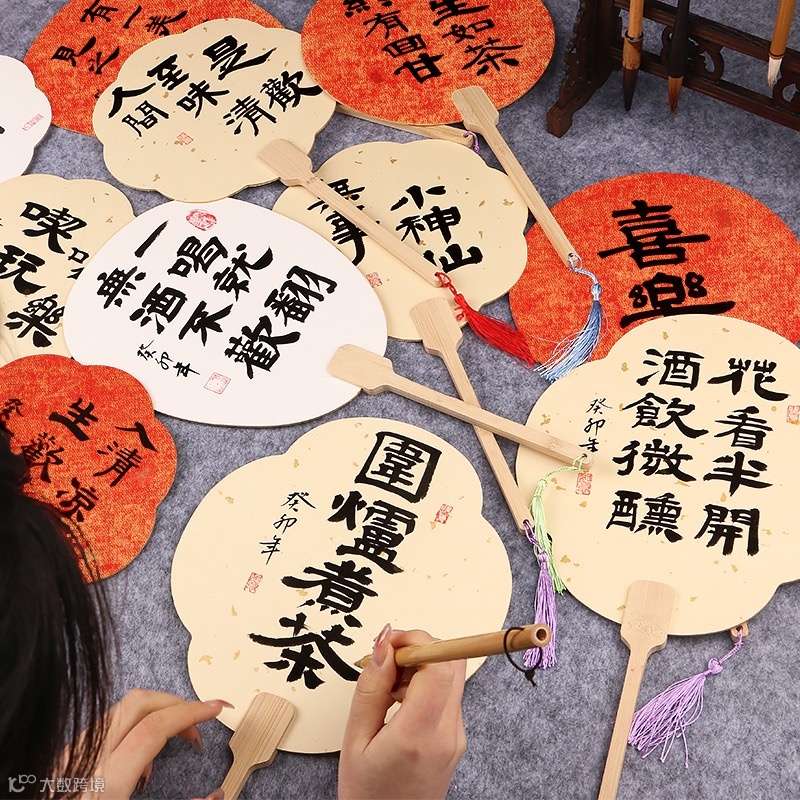 有一美
見之
人間
至味
是
清歡
生如茶
有回甘
小神仙
無事
喫喝
玩樂
一喝就翻
無酒不歡
癸卯年
喜樂
人清凉
生歡
花看半開
酒飲微醺
癸卯年
圍爐煮茶
癸卯年
大数跨境